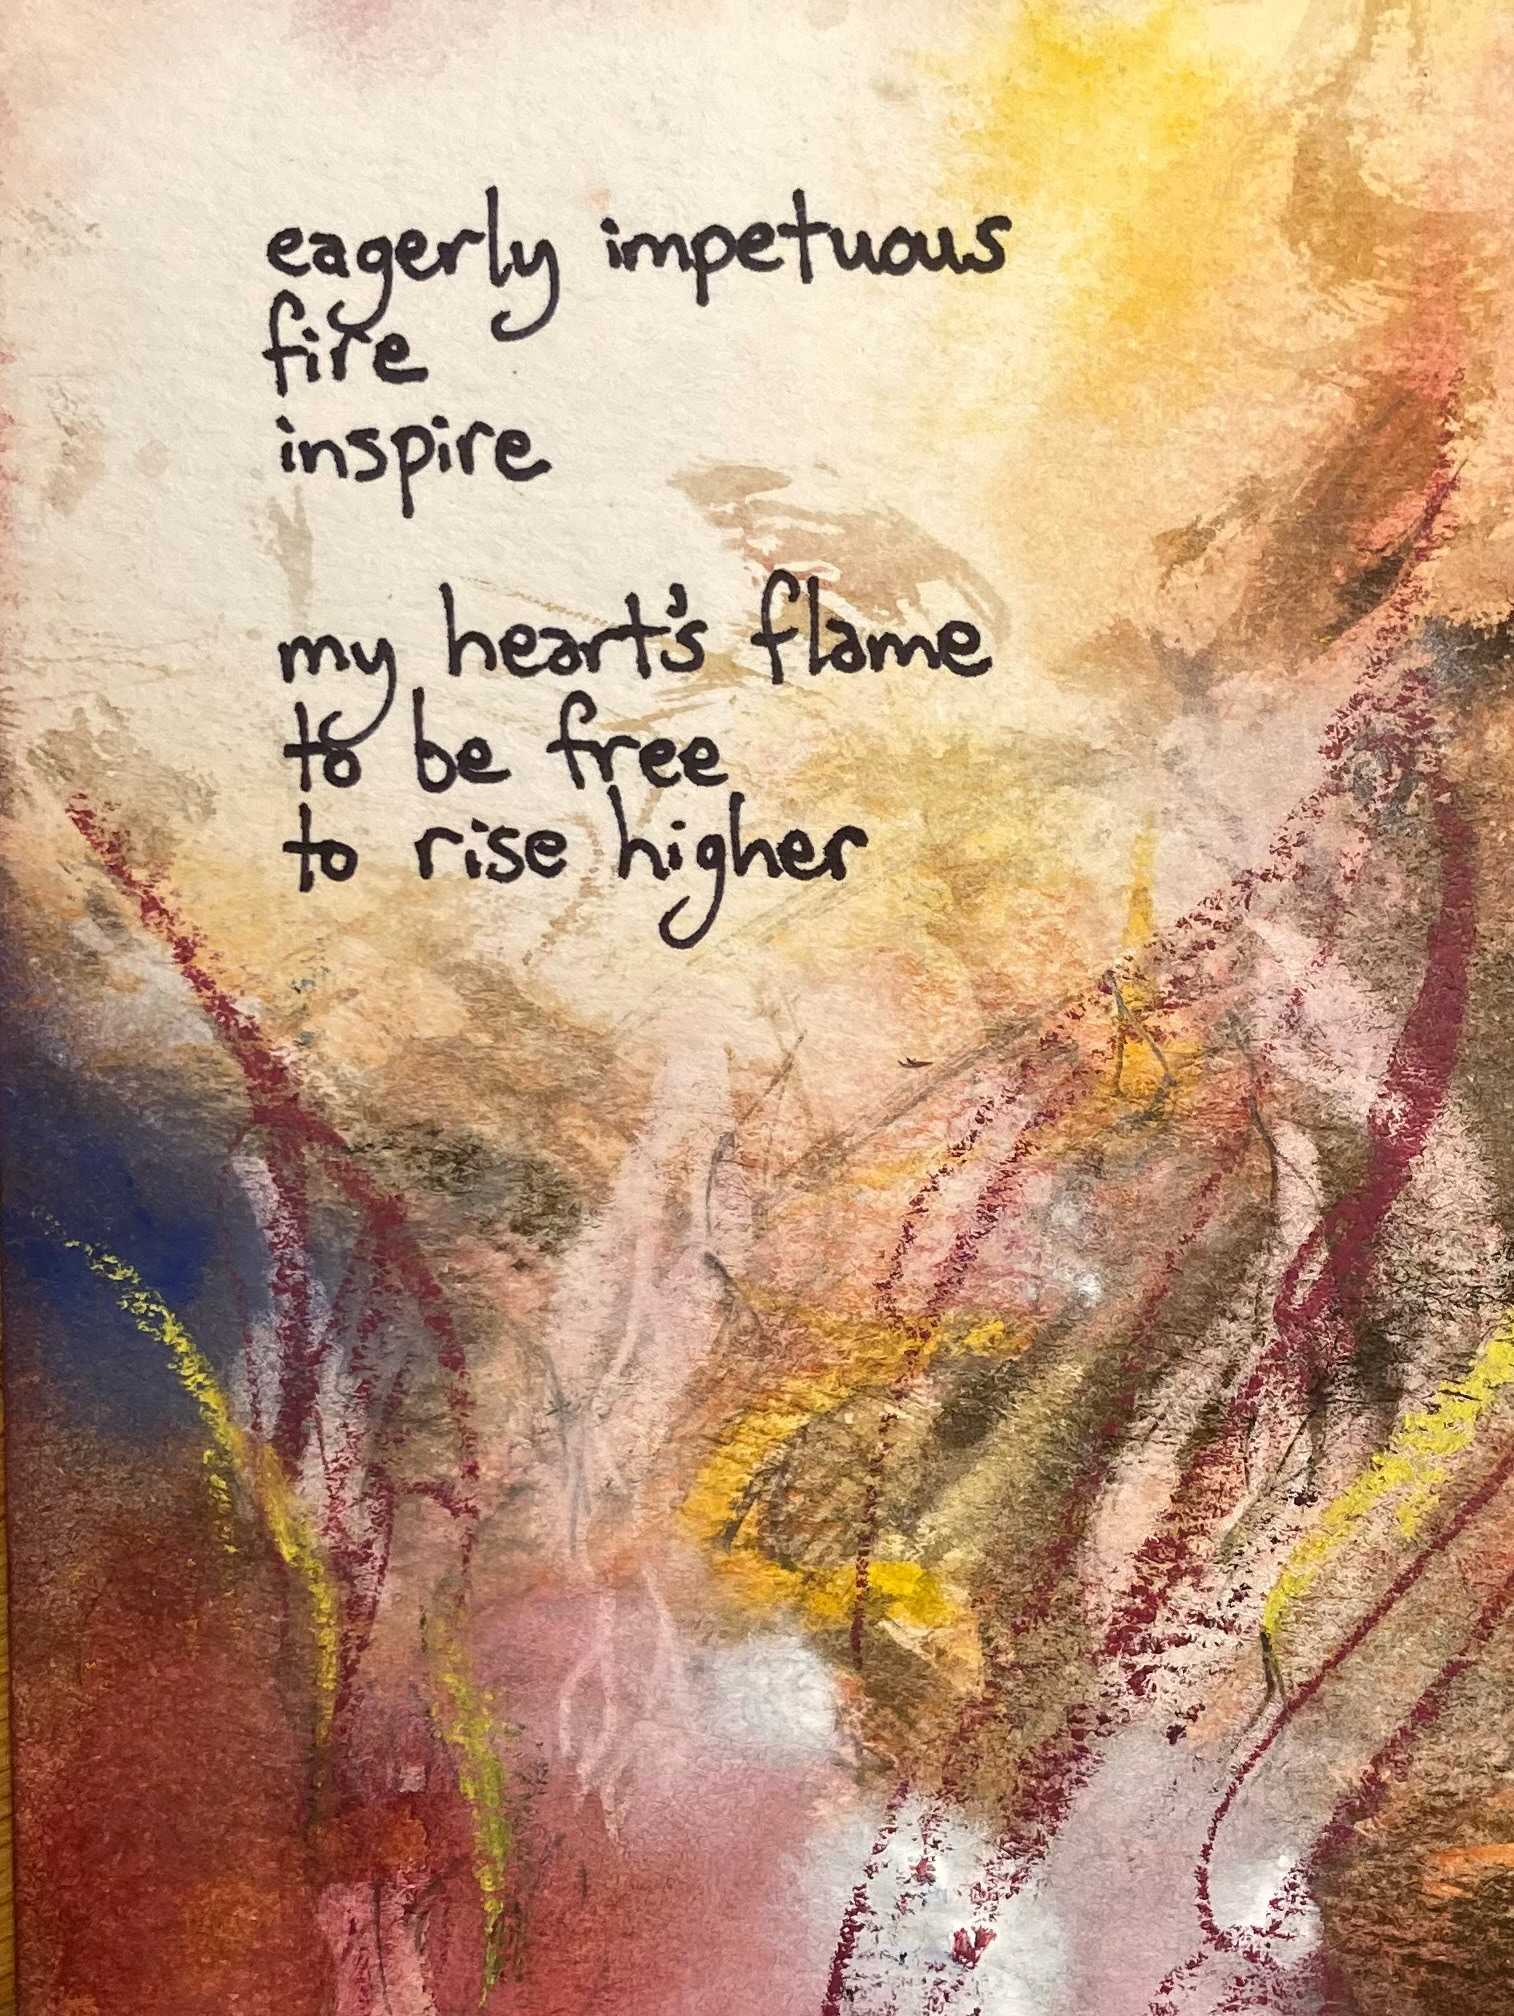 eagerly impetuous
fire
inspire
my heart's flame
to be free
to rise higher